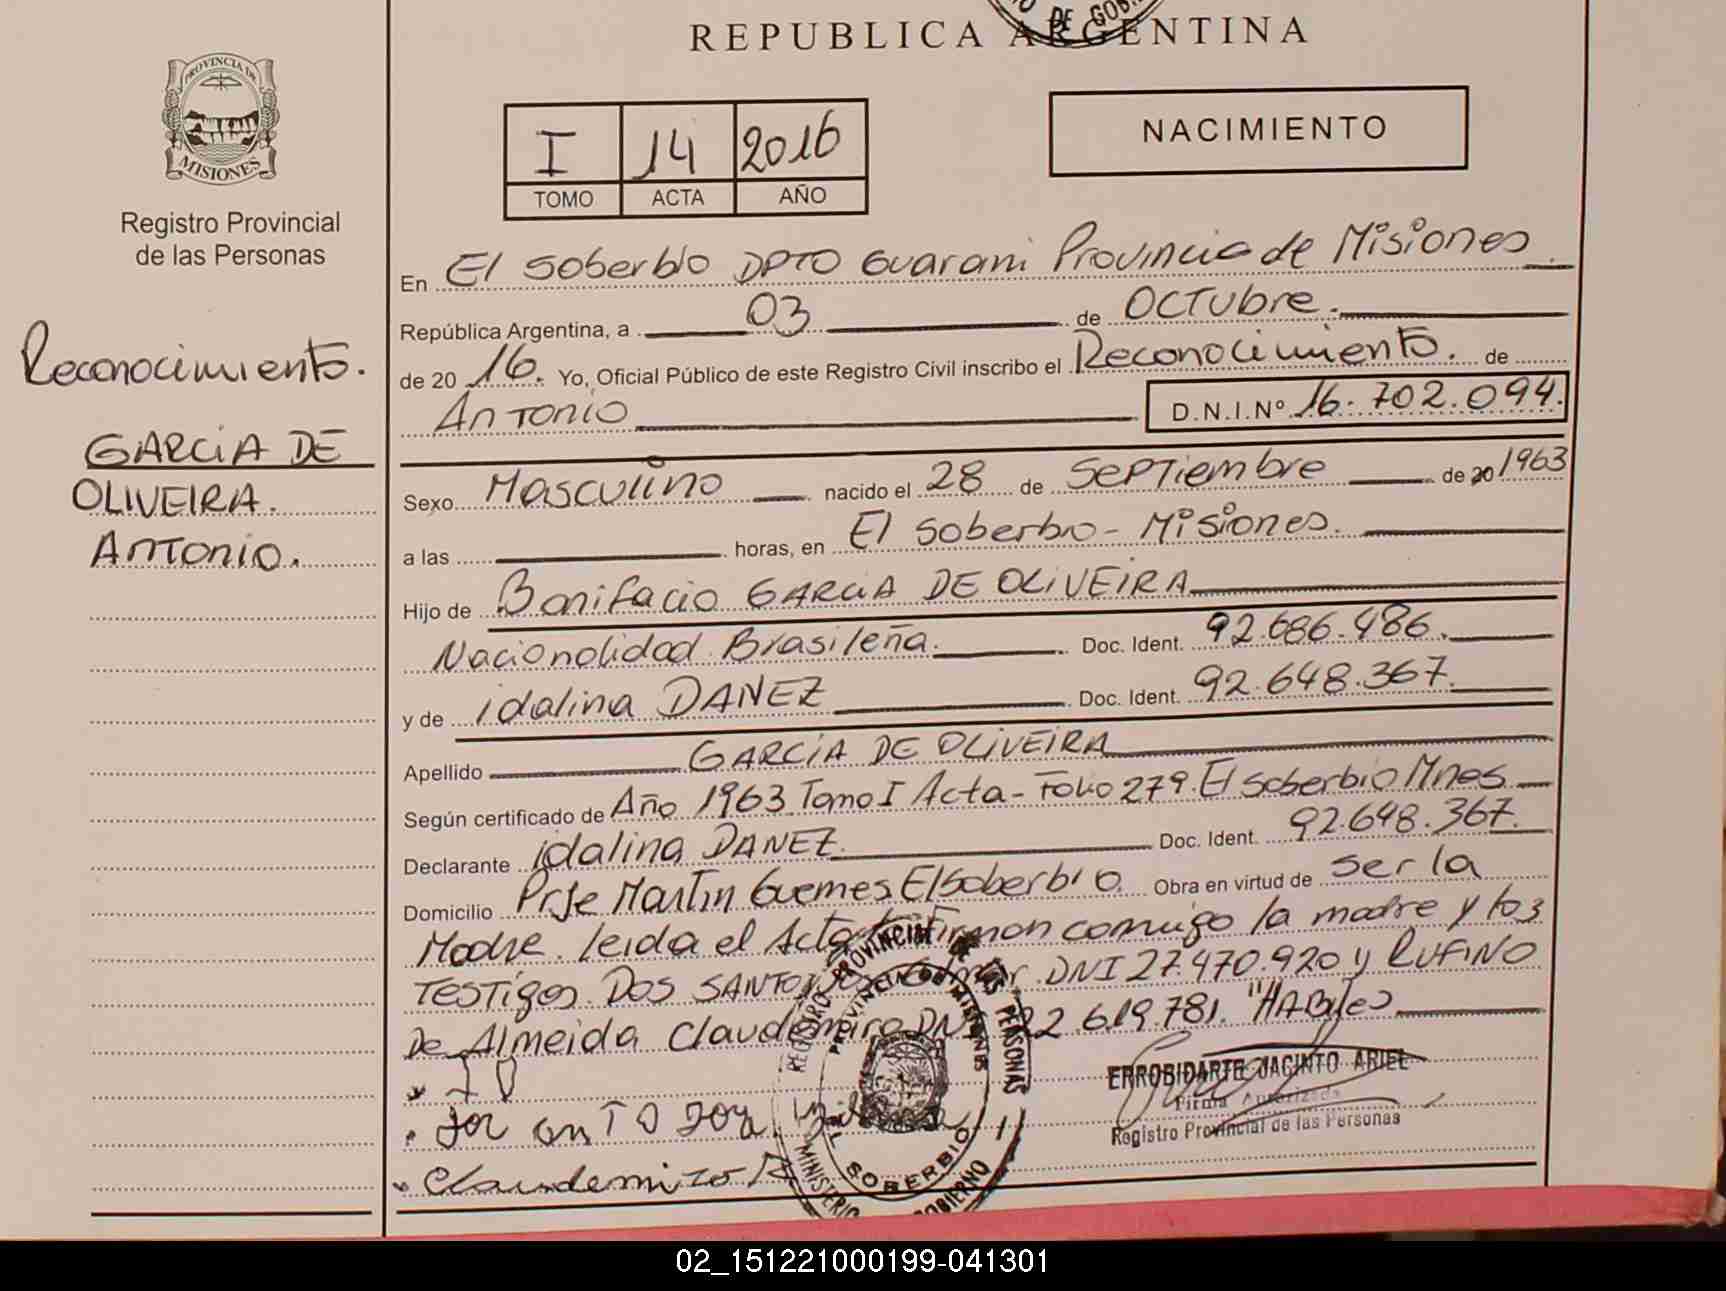 REPUBLICA ARGENTINA
PROVINCIA DE
MISIONES
Registro Provincial
de las Personas
I 14 2016
TOMO ACTA AÑO
NACIMIENTO
Reconocimiento.
GARCIA DE
OLIVEIRA.
Antonio.
En El Soberbio DPTO Guarani Provincia de Misiones
República Argentina, a 03 de OCTUbre.
de 20 16. Yo, Oficial Público de este Registro Civil inscribo el Reconocimiento. de
Antonio D.N.I.Nº 16.702.094.
Sexo Masculino nacido el 28 de Septiembre de 20 1963
a las horas, en El Soberbio - Misiones.
Hijo de Bonifacio GARCIA DE OLIVEIRA
Nacionalidad Brasileña. Doc. Ident. 92.686.486.
y de idalina DANEZ Doc. Ident. 92.648.367.
Apellido GARCIA DE OLIVEIRA
Según certificado de Año 1963 Tomo I Acta - Folio 279. El Soberbio Mnes
Declarante idalina DANEZ. Doc. Ident. 92.648.367.
Domicilio Prje Martin Guemes El Soberbio. Obra en virtud de ser la
Madre. leida el Acta Firman conmigo la madre y los
Testigos. DOS SANTOS DNI 27.470.920 y RUFINO
De Almeida Claudemiro DNI 22 619.781. "HABiles
REGISTRO PROVINCIAL DE LAS PERSONAS
PROVINCIA DE MISIONES
SOBERBIO
MINISTERIO GOBIERNO
ERROBIDARTE JACINTO ARIEL
Firma Autorizada
Registro Provincial de las Personas
Claudemiro
02_151221000199-041301